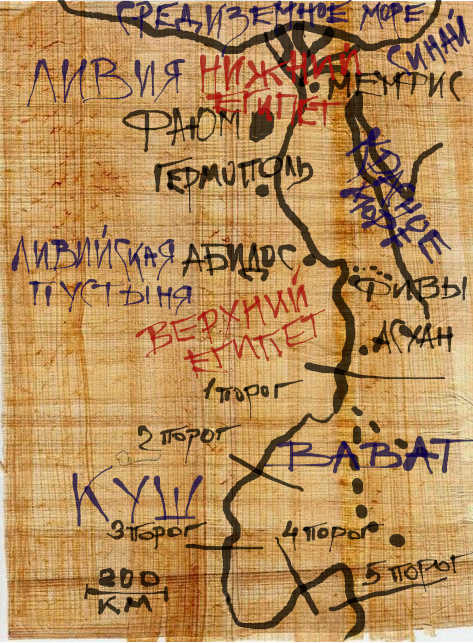 СРЕДИЗЕМНОЕ МОРЕ
СИНАЙ
ЛИВИЯ
НИЖНИЙ
ЕГИПЕТ
МЕМФИС
ФАЮМ
ГЕРМОПОЛЬ
КРАСНОЕ
МОРЕ
ЛИВИЙСКАЯ
ПУСТЫНЯ
АБИДОС
ФИВЫ
ВЕРХНИЙ
ЕГИПЕТ
АСУАН
1 ПОРОГ
2 ПОРОГ
ВАВАТ
КУШ
3 ПОРОГ
4 ПОРОГ
5 ПОРОГ
200
КМ